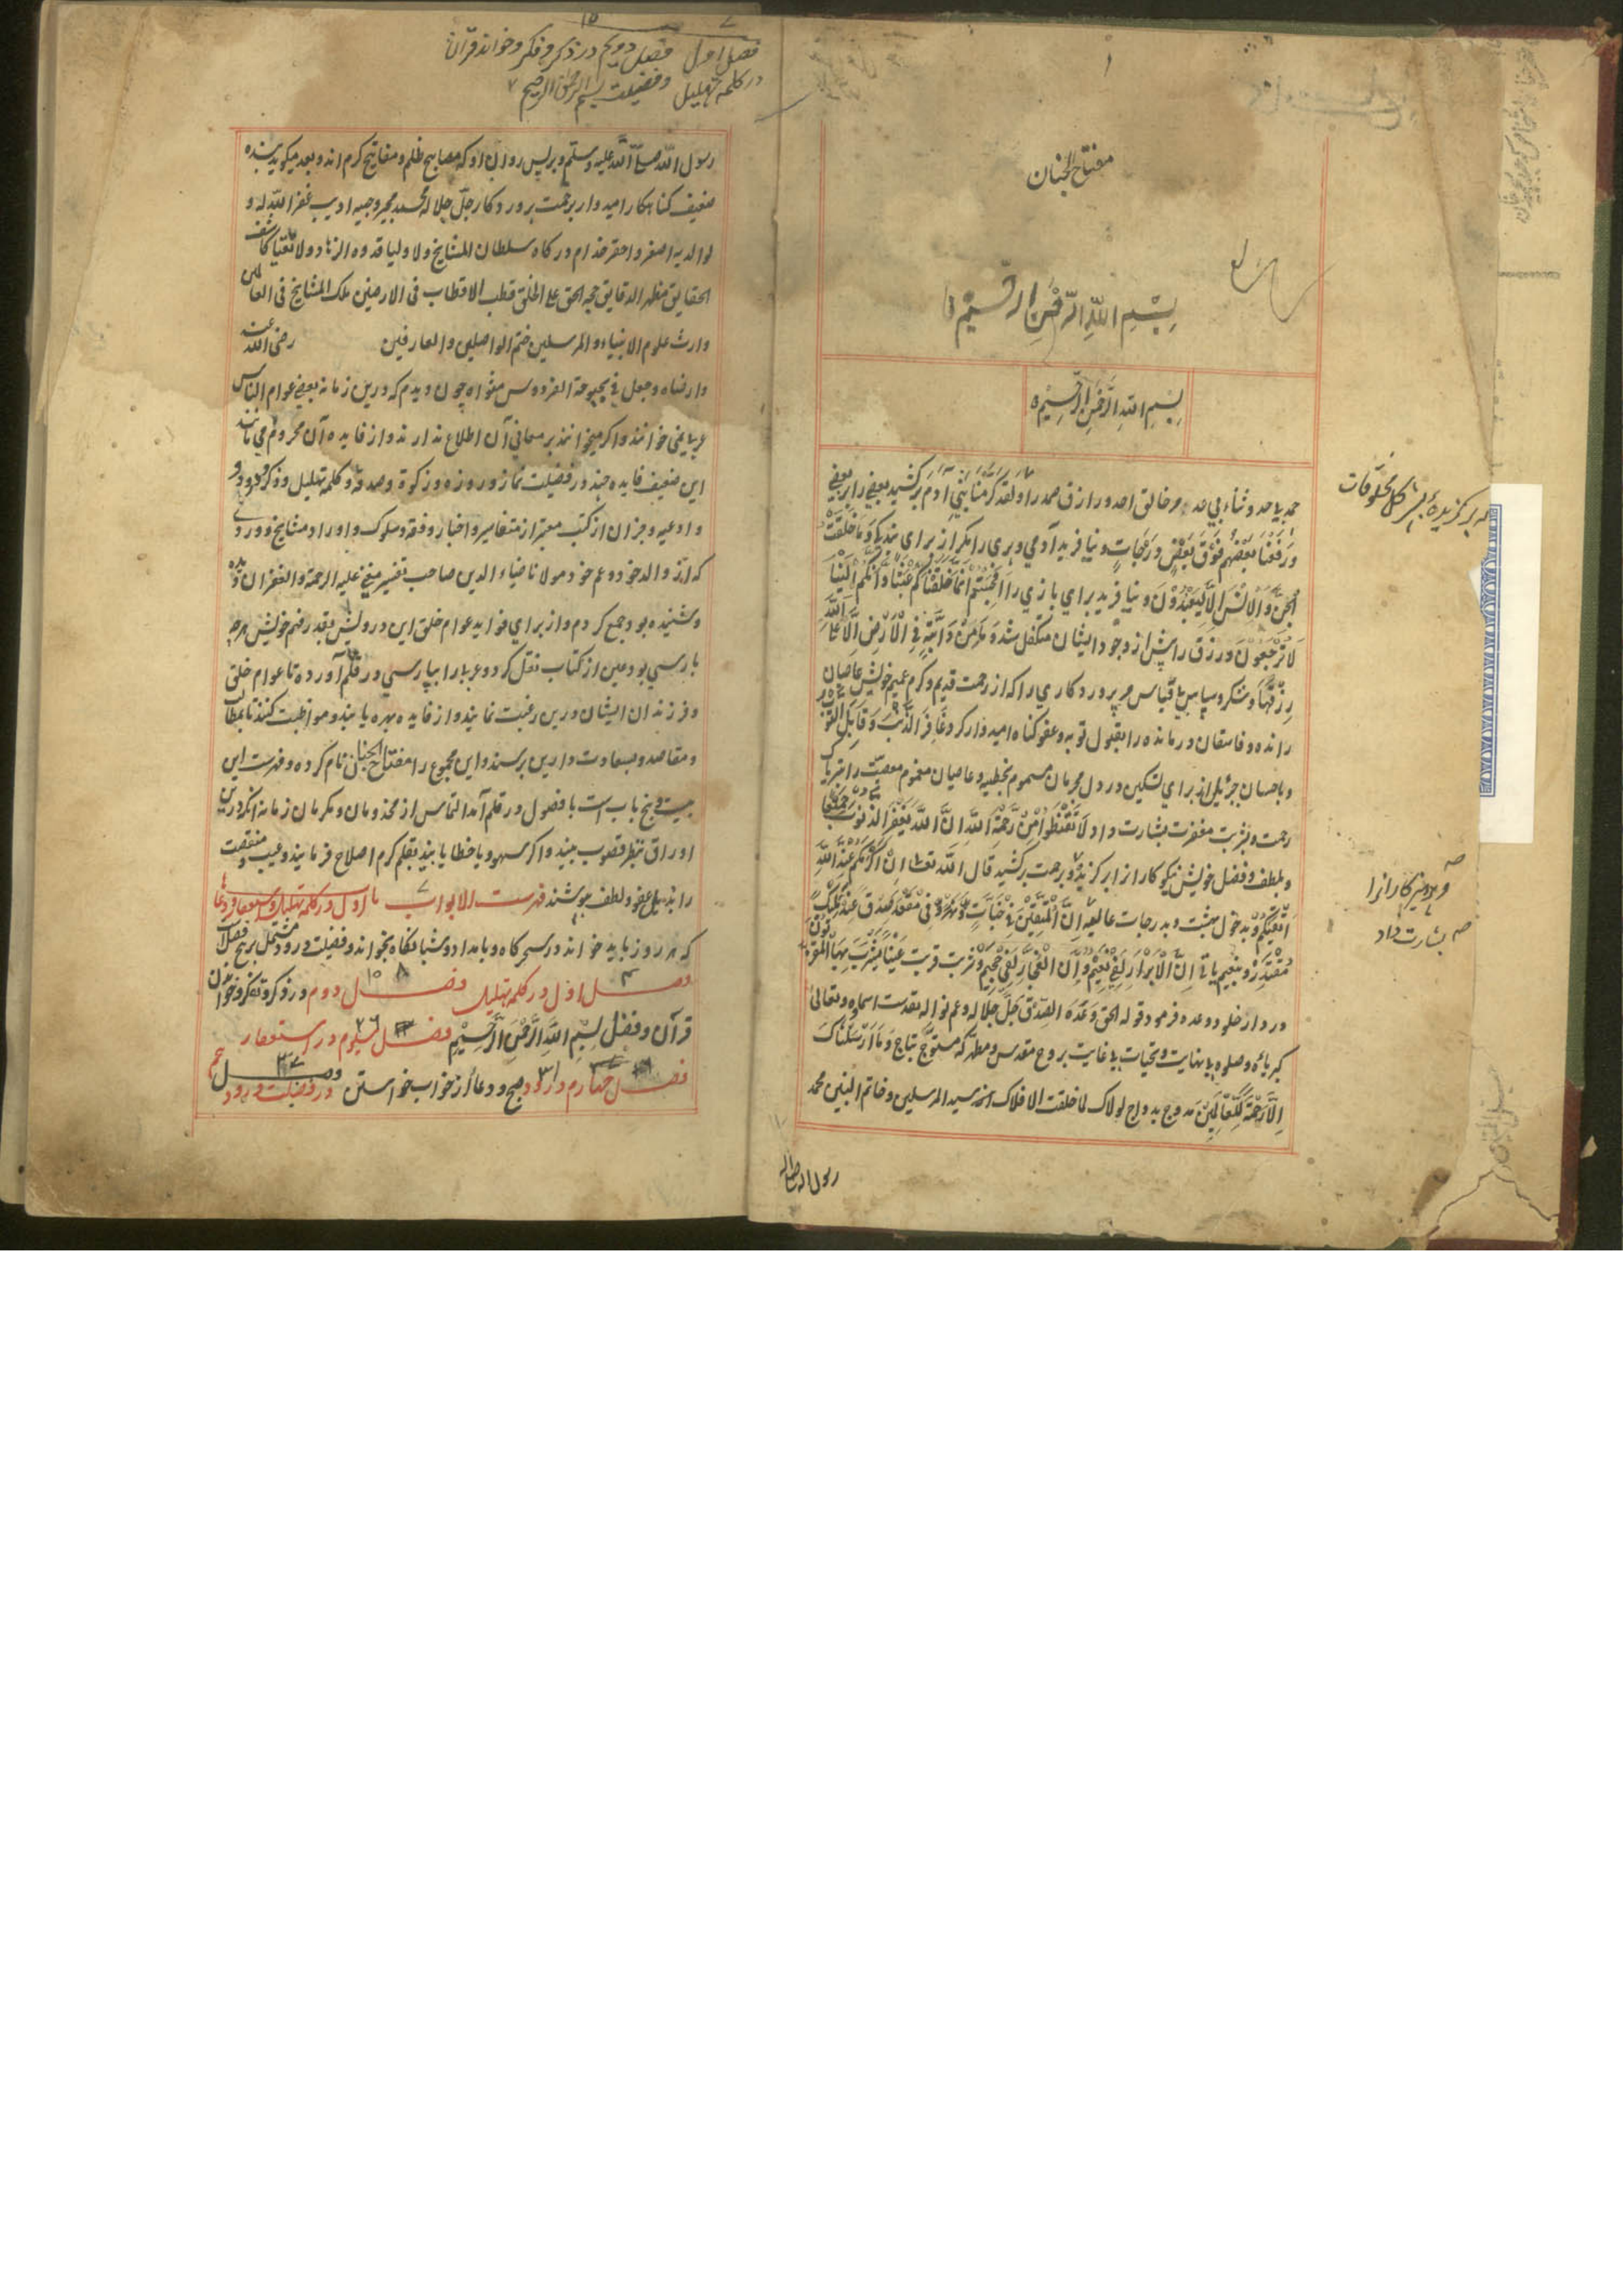 مفتاح الجنان
بِسْمِ اللّهِ الرَّحْمٰنِ الرَّحِيْمِ
بِسْمِ اللّهِ الرَّحْمٰنِ الرَّحِيْمِ
حمد بیحد و ثناء بی عد مر خالق احد و رازق صمد را وَلَقَدْ كَرَّمْنَا بَنِيْ آدَمَ برکشید بعضی را بر بعضی
وَرَفَعْنَا بَعْضَهُمْ فَوْقَ بَعْضٍ دَرَجَاتٍ و نیافرید آدمی و پری را مکر از برای بندکی وَمَا خَلَقْتُ
الْجِنَّ وَالْاِنْسَ اِلَّا لِيَعْبُدُوْنَ و نیافرید برای بازی را اَفَحَسِبْتُمْ اَنَّمَا خَلَقْنَاكُمْ عَبَثًا وَّاَنَّكُمْ اِلَيْنَا
لَا تُرْجَعُوْنَ و رزق را پیش از وجود ایشان متکفل شد وَمَا مِنْ دَابَّةٍ فِي الْاَرْضِ اِلَّا عَلَى اللّهِ
رِزْقُهَا و شکر و سپاس بی قیاس مر پروردکاری را که از رحمت قدیم و کرم عمیم خویش عاصیان
رانده و فاسقان درمانده را بقبول توبه و عفو کناه امیدوار کرد غَافِرِ الذَّنْبِ وَقَابِلِ التَّوْبِ
و باحسان جزیل از برای تسکین درد دل مجرمان مسموم بخطیه و عاصیان مغموم معصیت را تریاک
رحمت و شربت مغفرت بشارت داد لَا تَقْنَطُوْا مِنْ رَحْمَةِ اللّهِ اِنَّ اللّهَ يَغْفِرُ الذُّنُوْبَ جَمِيْعًا
و بلطف و فضل خویش نیکوکار از ابرکزید و برحمت برکشید قال اللّه تعالی اِنَّ اَكْرَمَكُمْ عِنْدَ اللّهِ
اَتْقٰيكُمْ و بدخول بهشت و بدرجات عالیه اِنَّ الْمُتَّقِيْنَ فِيْ جَنَّاتٍ وَّنَهَرٍ فِيْ مَقْعَدِ صِدْقٍ عِنْدَ مَلِيْكٍ
مُقْتَدِرٍ و بنعیم باقی اِنَّ الْاَبْرَارَ لَفِيْ نَعِيْمٍ وَّاِنَّ الْفُجَّارَ لَفِيْ جَحِيْمٍ و شربت قربت عَيْنًا يَشْرَبُ بِهَا الْمُقَرَّبُوْنَ
در دار خلود وعده فرمود قوله الحق وَعْدَهُ الصِّدْقُ جَلَّ جلاله و عم نواله تقدست اسماؤه و تعالی
کبریاءه و صلوة بی نهایت و تحیات بی غایت بروح مقدس و مطهر که متوّج بتاج وَمَا اَرْسَلْنَاكَ
اِلَّا رَحْمَةً لِّلْعَالَمِيْنَ مدوّج بدواج لولاک لما خلقت الافلاک سید المرسلین و خاتم النبیین محمد
برگزیده بشر کل مخلوقات
و پرهیزکارانرا
بشارت داد
رسول الله صلی الله
فصل اول فصل دویم در ذکر و فکر و خواند قرآن
در کلمه تهلیل و فضیلت بسم الله الرحمن الرحیم
رسول اللّه صلّی اللّه علیه وسلّم و بر پس روان او که مصابیح ظلم و مفاتیح کرم اند و بعد میکوید بنده
ضعیف کناهکار امیدوار برحمت پروردکار جلّ جلاله محمد مجیر وجیه ادیب غفر اللّه له و
لوالدیه اصغر و احقر خدام درکاه سلطان المشایخ و الاولیا قدوه الزهاد و الاتقیا کاشف
الحقایق مظهر الدقایق حجه الحق علی الخلق قطب الاقطاب فی الارضین ملک المشایخ فی العالمین
وارث علوم الانبیاء و المرسلین ختم الواصلین و العارفین رضی اللّه عنه
وارضاه و جعل فی بحبوحة الفردوس مثواه چون دیدم که درین زمانه بعضی عوام الناس
عربی نمی خوانند و اکر میخوانند بر معانی آن اطلاع ندارند و از فایده آن محروم می مانند
این ضعیف فایده چند در فضیلت نماز و روزه و زکوة و صدقه و کلمه تهلیل و ذکر و درود و
و ادعیه و جز آن از کتب معتبر از تفاسیر و اخبار و فقه و سلوک و اوراد مشایخ و وردی
که از والد خود و عم خود مولانا ضیاء الدین صاحب تفسیر مغنی علیه الرحمة و الغفران دیده
و شنیده بود جمع کردم و از برای فواید عوام خلق این درویش بقدر فهم خویش هرچه
پارسی بود عین از کتاب نقل کرد و عربی را بپارسی در قلم آورده تا عوام خلق
و فرزندان ایشان درین رغبت نمایند و از فایده بهره یابند و مواظبت کنند تا بمطالب
و مقاصد و بسعادت دارین برسند و این مجموع را مفتاح الجنان نام کرده و فهرست این
بیست و پنج باب است با فصول در قلم آمد التماس از مخدومان و مکرمان زمانه انکه درین
اوراق بنظر قصور بینند و اکر سهو و یا خطا یابند بقلم کرم اصلاح فرمایند و عیب و منقصت
را بذیل عفو و لطف بپوشند فهرست الابواب باب اول در کلمه تهلیل و استغفار و دعا
که هر روز باید خواند در سحرکاه و بامداد و شبانکاه بخواند و فضیلت درود مشتمل بر پنج فصل است
فصل اول در کلمه تهلیل فصل دوم در ذکر و تفکر و خواندن
قرآن و فضل بِسْمِ اللّهِ الرَّحْمٰنِ الرَّحِيْمِ فصل سیوم در استغفار
فصل چهارم در ورد صبح و دعا از خواب خواستن فصل پنجم در فضیلت درود